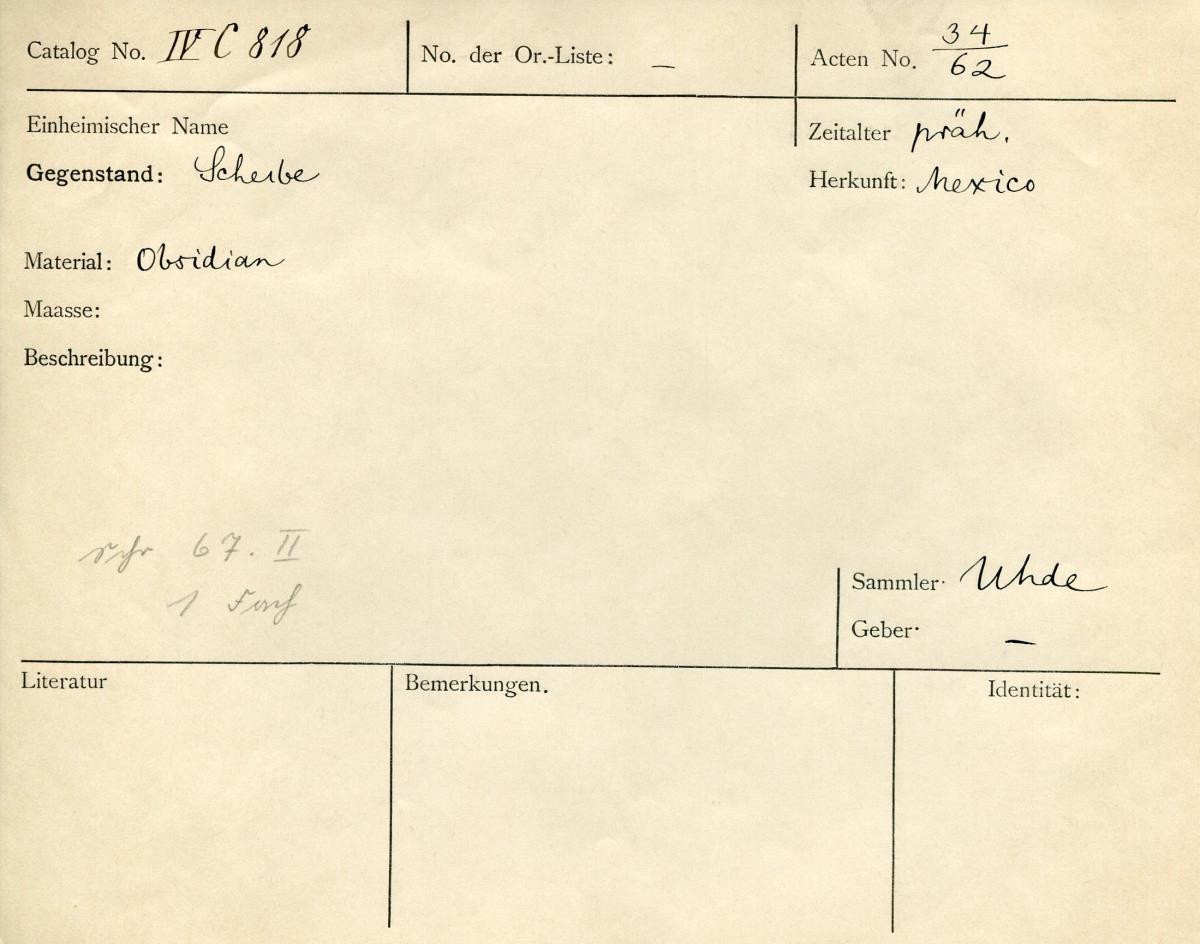 Catalog No. IV C 818
No. der Or.-Liste: —
Acten No. 34/62
Einheimischer Name
Zeitalter präh.
Gegenstand: Scheibe
Herkunft: Mexico
Material: Obsidian
Maasse:
Beschreibung:
Schr 67. II
1 Fach
Sammler. Uhde
Geber. —
Literatur
Bemerkungen.
Identität: